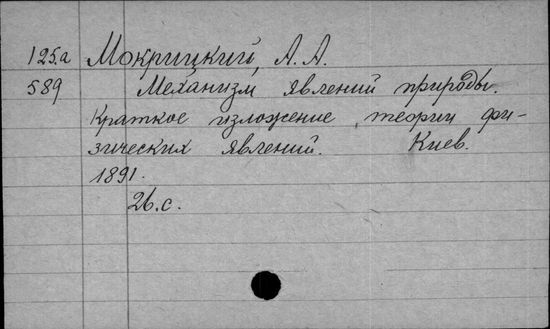 125.а Мокрицкий, А. А.
589 Механизм явлений природы.
Краткое изложение теории фи-
зических явлений. Киев.
1891.
26.с.